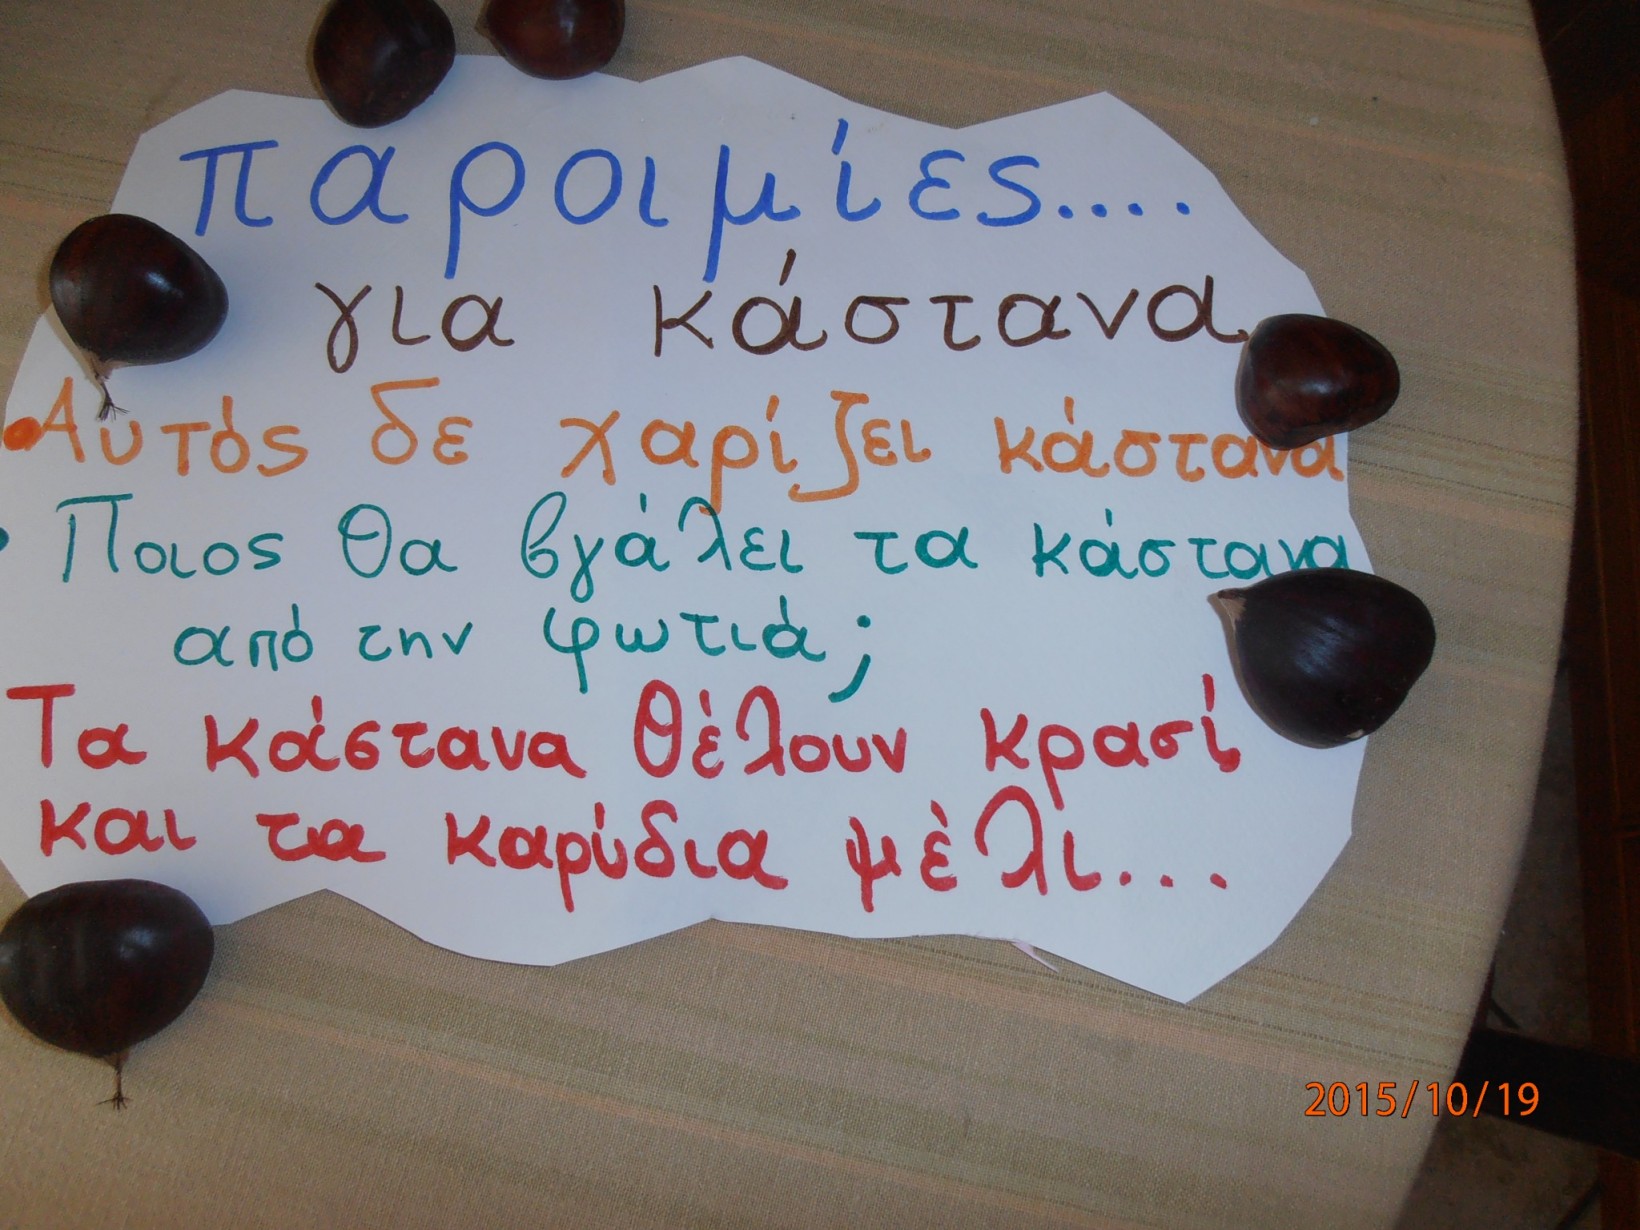 παροιμίες....
για κάστανα
• Αυτός δε χαρίζει κάστανα
• Ποιος θα βγάλει τα κάστανα
από την φωτιά;
Τα κάστανα θέλουν κρασί
και τα καρύδια μέλι...
2015/10/19